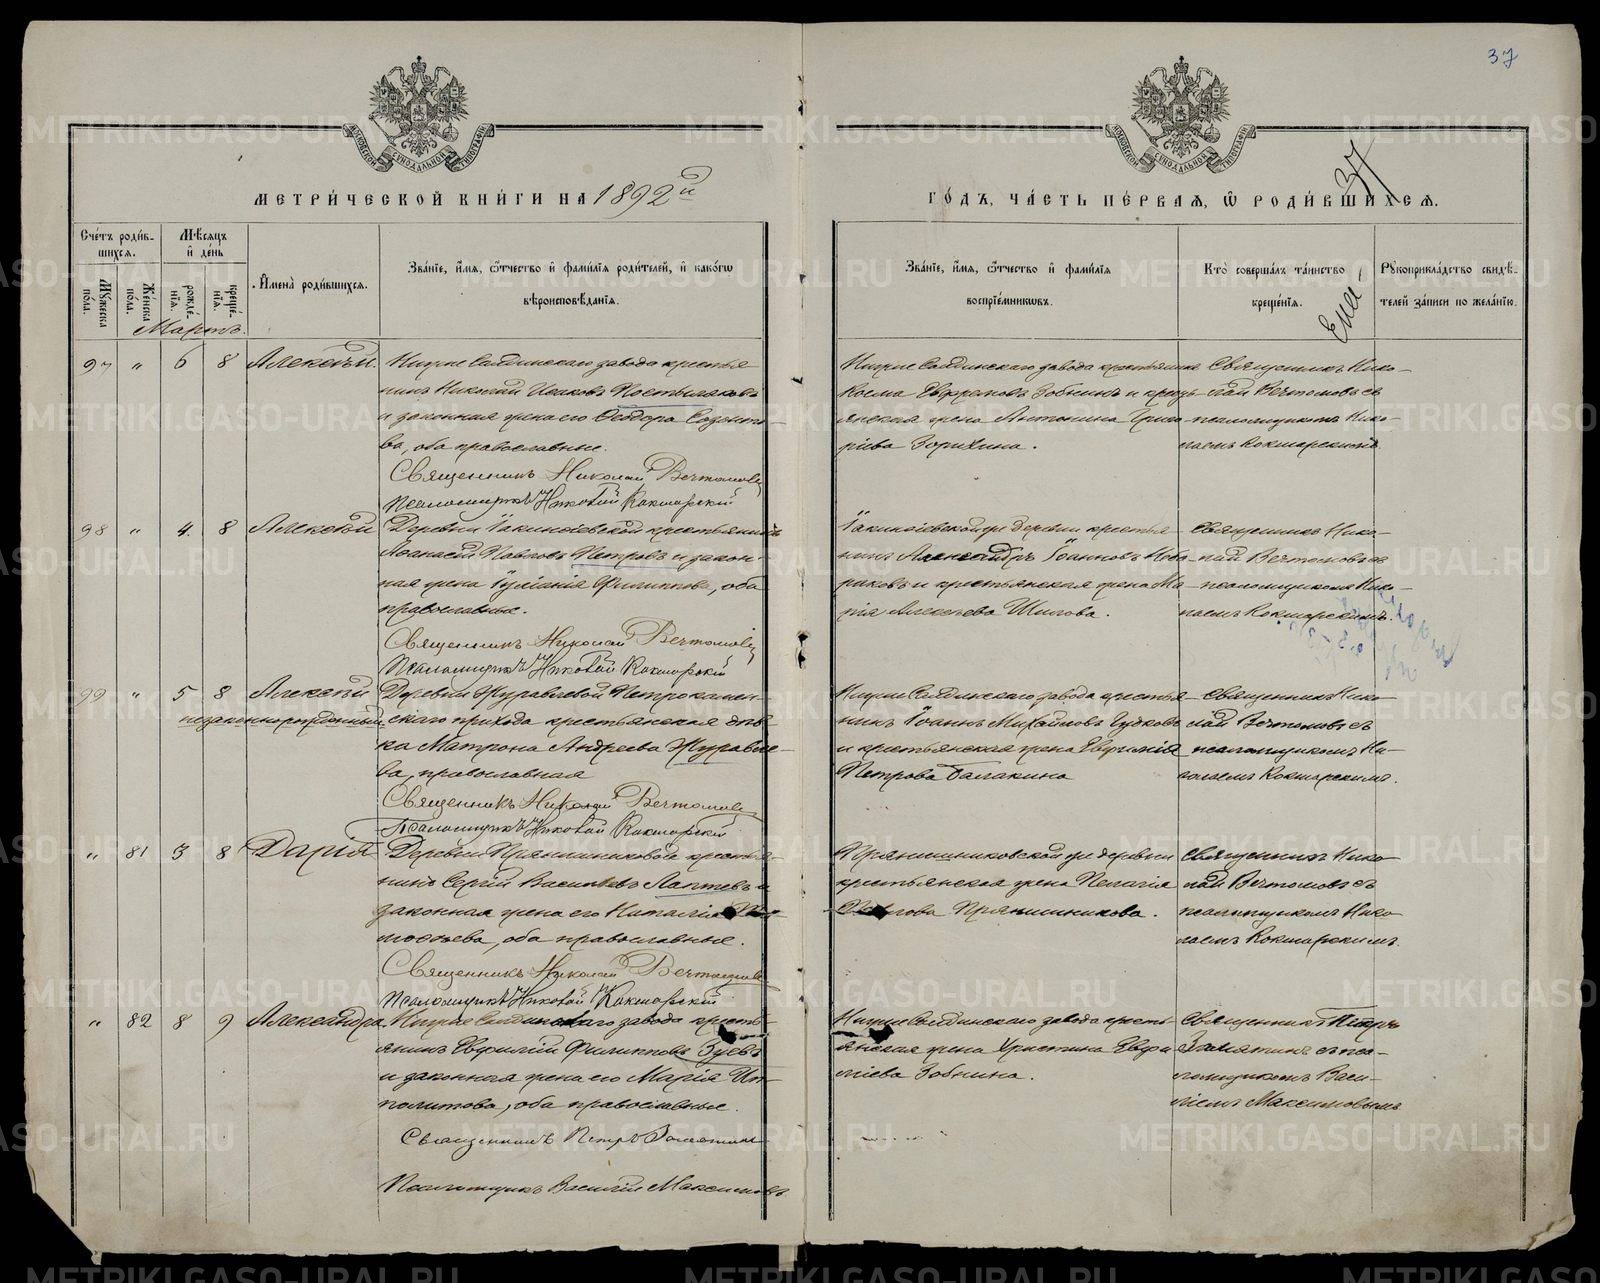 37
37
МОСКОВСКОЙ СѴНОДАЛЬНОЙ ТИПОГРАФІИ
МОСКОВСКОЙ СѴНОДАЛЬНОЙ ТИПОГРАФІИ
МЕТРИ́ЧЕСКОЙ КНИ́ГИ НА 1892 й
ГО́ДЪ, ЧА́СТЬ ПЕ́РВАЯ, Ѽ РОДИ́ВШИХСЯ.
Сче́тъ роди́в-
шихся.
Му́жеска по́ла.
Же́нска по́ла.
Мѣ́сяцъ
и҆ де́нь
рожде́нїя.
креще́нїя.
И҆мена̀ роди́вшихся.
Зва́нїе, и҆́мя, ѻ҆́тчество и҆ фами́лїя роди́телей, и҆ како́гѡ
вѣроисповѣ́данїя.
Зва́нїе, и҆́мя, ѻ҆́тчество и҆ фами́лїя
воспрїе́мниковъ.
Кто̀ соверша́лъ та́инство
креще́нїя.
Рꙋкоприкла́дство свидѣ́-
телей за́писи по жела́нїю.
Мартъ.
97 " 6 8 Алексѣй.
Нижне Салдинскаго завода крестья-
нинъ Николай Исаковъ Постыляковъ
и законная жена его Ѳеодора Созонто-
ва, оба православные.
Священникъ Николай Вечтомовъ
Псаломщикъ Николай Кокшарскій
Нижне Салдинскаго завода крестьянинъ
Косма Евфремовъ Зобнинъ и кресть-
янская жена Антонина Григо-
рьева Зорихина.
Священникъ Нико-
лай Вечтомовъ съ
псаломщикомъ Нико-
лаемъ Кокшарскимъ.
98 " 4. 8 Алексѣй
Деревни Іакинѳіевской крестьянинъ
Аѳанасій Павловъ Петровъ и закон-
ная жена Іуліанія Филиппова, оба
православные.
Священникъ Николай Вечтомовъ
Псаломщикъ Николай Кокшарскій
Іакинѳіевской же деревни крестья-
нинъ Александръ Іоанновъ
и крестьянская жена Ма-
рія Алексѣева Шилова.
Священникъ Нико-
лай Вечтомовъ съ
псаломщикомъ Нико-
лаемъ Кокшарскимъ.
99 " 5 8 Алексѣй
незаконнорожденный
Деревни Журавлевой Петрокамен-
скаго прихода крестьянская дѣв-
ка Матрона Андреева Журавле-
ва, православная
Священникъ Николай Вечтомовъ
Псаломщикъ Николай Кокшарскій
Нижне Салдинскаго завода крестья-
нинъ Іоаннъ Михайловъ Гудковъ
и крестьянская жена Евфимія
Петрова Балакина
Священникъ Нико-
лай Вечтомовъ съ
псаломщикомъ Ни-
колаемъ Кокшарскимъ.
" 81 3 8 Дарія
Деревни Прянишниковой крестья-
нинъ Сергій Васильевъ Лаптевъ и
законная жена его Наталія Ти-
моѳеева, оба православные.
Священникъ Николай Вечтомовъ
Псаломщикъ Николай Кокшарскій
Прянишниковской же деревни
крестьянская жена Пелагія
Павлова Прянишникова.
Священникъ Нико-
лай Вечтомовъ съ
псаломщикомъ Нико-
лаемъ Кокшарскимъ.
" 82 8 9 Александра.
Нижне Салдинскаго завода кресть-
янинъ Евфилій Филипповъ Зуевъ
и законная жена его Марія Ип-
политова, оба православные.
Священникъ Петръ Замятинъ
Псаломщикъ Василій Максимовъ
Нижне Салдинскаго завода кресть-
янская жена Христина Евфи-
міева Зобнина.
Священникъ Петръ
Замятинъ съ пса-
ломщикомъ Васи-
ліемъ Максимовымъ
METRIKI.GASO-URAL.RU